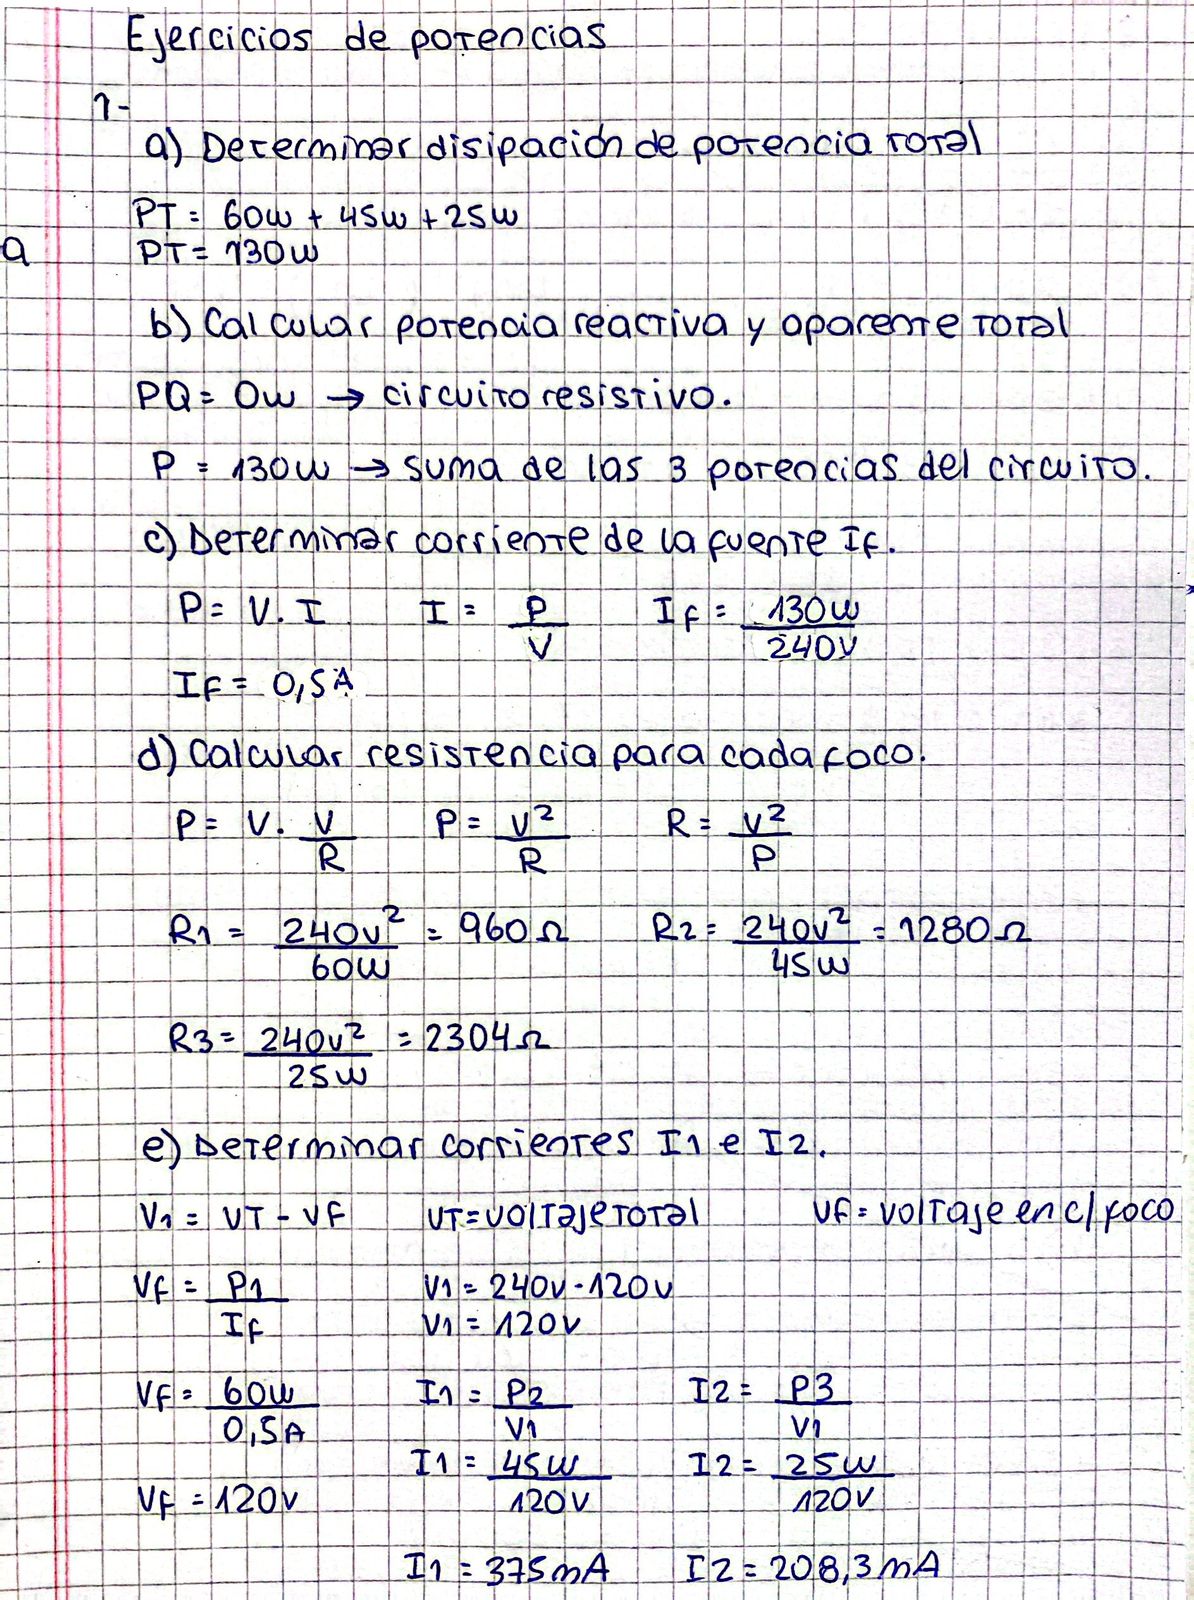 Ejercicios de potencias
1-
a) Determinar disipación de potencia total
PT = 60w + 45w + 25w
a
PT = 130w
b) Calcular potencia reactiva y aparente total
PQ = 0w → circuito resistivo.
P = 130w → suma de las 3 potencias del circuito.
c) Determinar corriente de la fuente If.
P = V. I I = P/V If = 130w/240v
If = 0,5A
d) Calcular resistencia para cada foco.
P = V. V/R P = V²/R R = V²/P
R1 = 240v²/60w = 960Ω R2 = 240v²/45w = 1280Ω
R3 = 240v²/25w = 2304Ω
e) Determinar corrientes I1 e I2.
V1 = VT - VF VT = voltaje total VF = voltaje en c/ foco
Vf = P1/If V1 = 240v - 120v
V1 = 120v
Vf = 60w/0,5A I1 = P2/V1 I2 = P3/V1
I1 = 45w/120v I2 = 25w/120v
Vf = 120v
I1 = 375mA I2 = 208,3mA